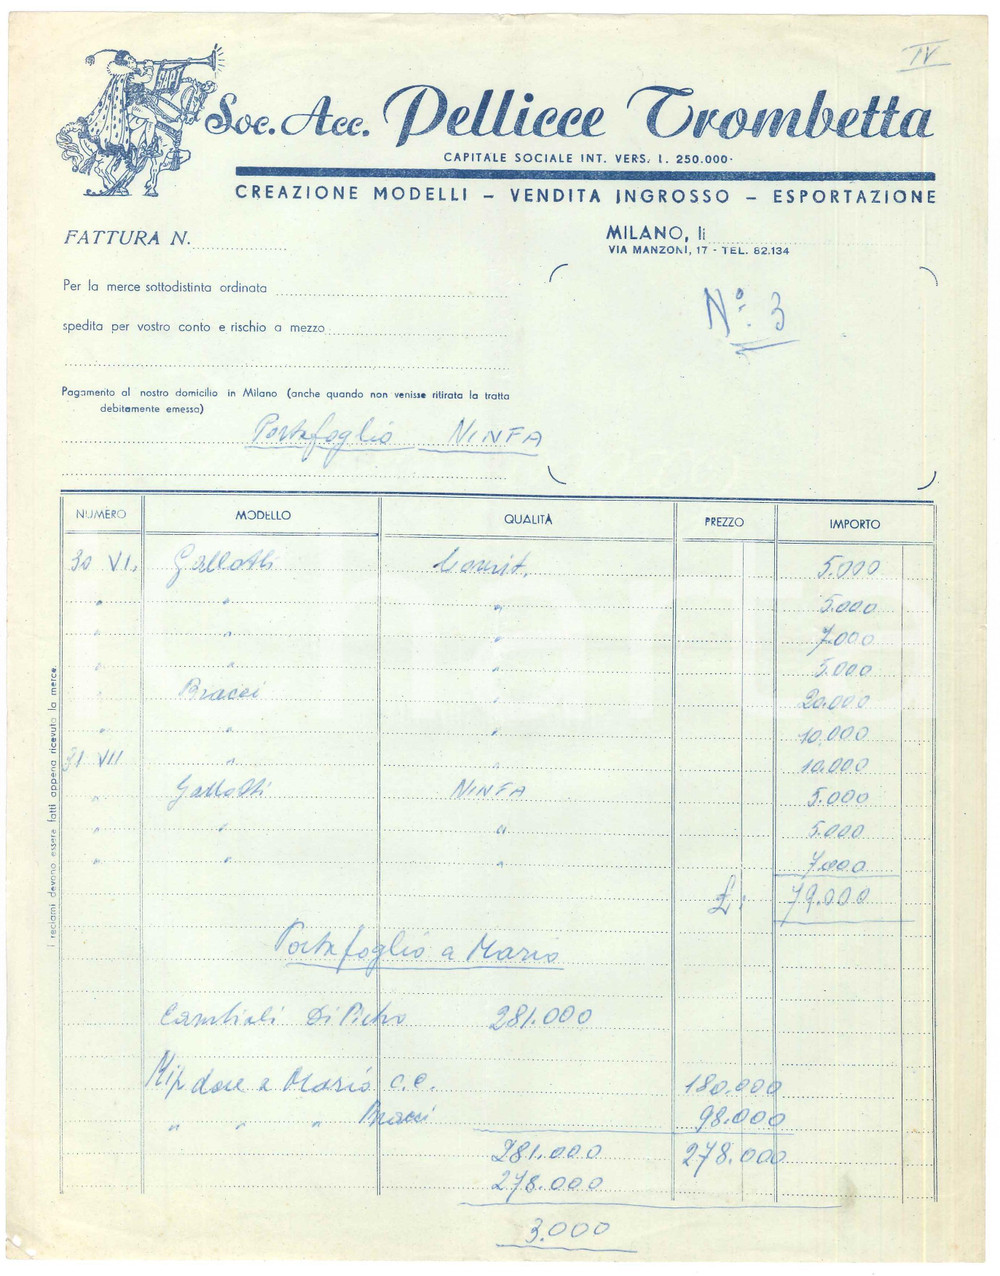 IV
SAPT
Soc. Acc. Pellicce Trombetta
CAPITALE SOCIALE INT. VERS. L. 250.000.
CREAZIONE MODELLI – VENDITA INGROSSO – ESPORTAZIONE
FATTURA N.
MILANO, li
VIA MANZONI, 17 - TEL. 82.134
Per la merce sottodistinta ordinata
N°. 3
spedita per vostro conto e rischio a mezzo
Pagamento al nostro domicilio in Milano (anche quando non venisse ritirata la tratta
debitamente emessa)
Portafoglio NINFA
NUMERO MODELLO QUALITÀ PREZZO IMPORTO
30 VI. Gallotti 5.000
" " " 5.000
" " " 7.000
" " " 5.000
" Bracci " 20.000
" " " 10.000
31 VII " 10.000
" Gallotti NINFA 5.000
" " " 5.000
" " " 7.000
£: 79.000
Portafoglio a Mario
Cambiali Di Pietro 281.000
dare a Mario c.c. 180.000
" " " Bracci 98.000
281.000 278.000
278.000
3.000
I reclami devono essere fatti appena ricevuta la merce.